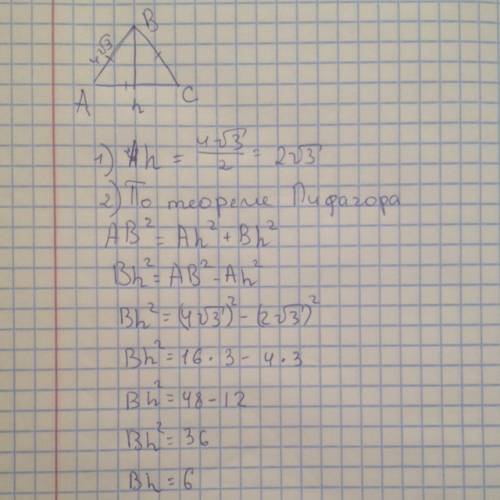 B
4√3
A h C
1) Ah = 4√3/2 = 2√3
2) По теореме Пифагора
AB² = Ah² + Bh²
Bh² = AB² - Ah²
Bh² = (4√3)² - (2√3)²
Bh² = 16 · 3 - 4 · 3
Bh² = 48 - 12
Bh² = 36
Bh = 6